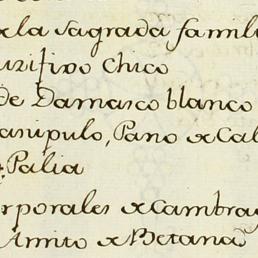 la Sagrada famil
Crucifixo Chico
de Damasco blanco
anipulo, Pano de Cal
Palia
orporales de Cambray
Amito de Bretaña